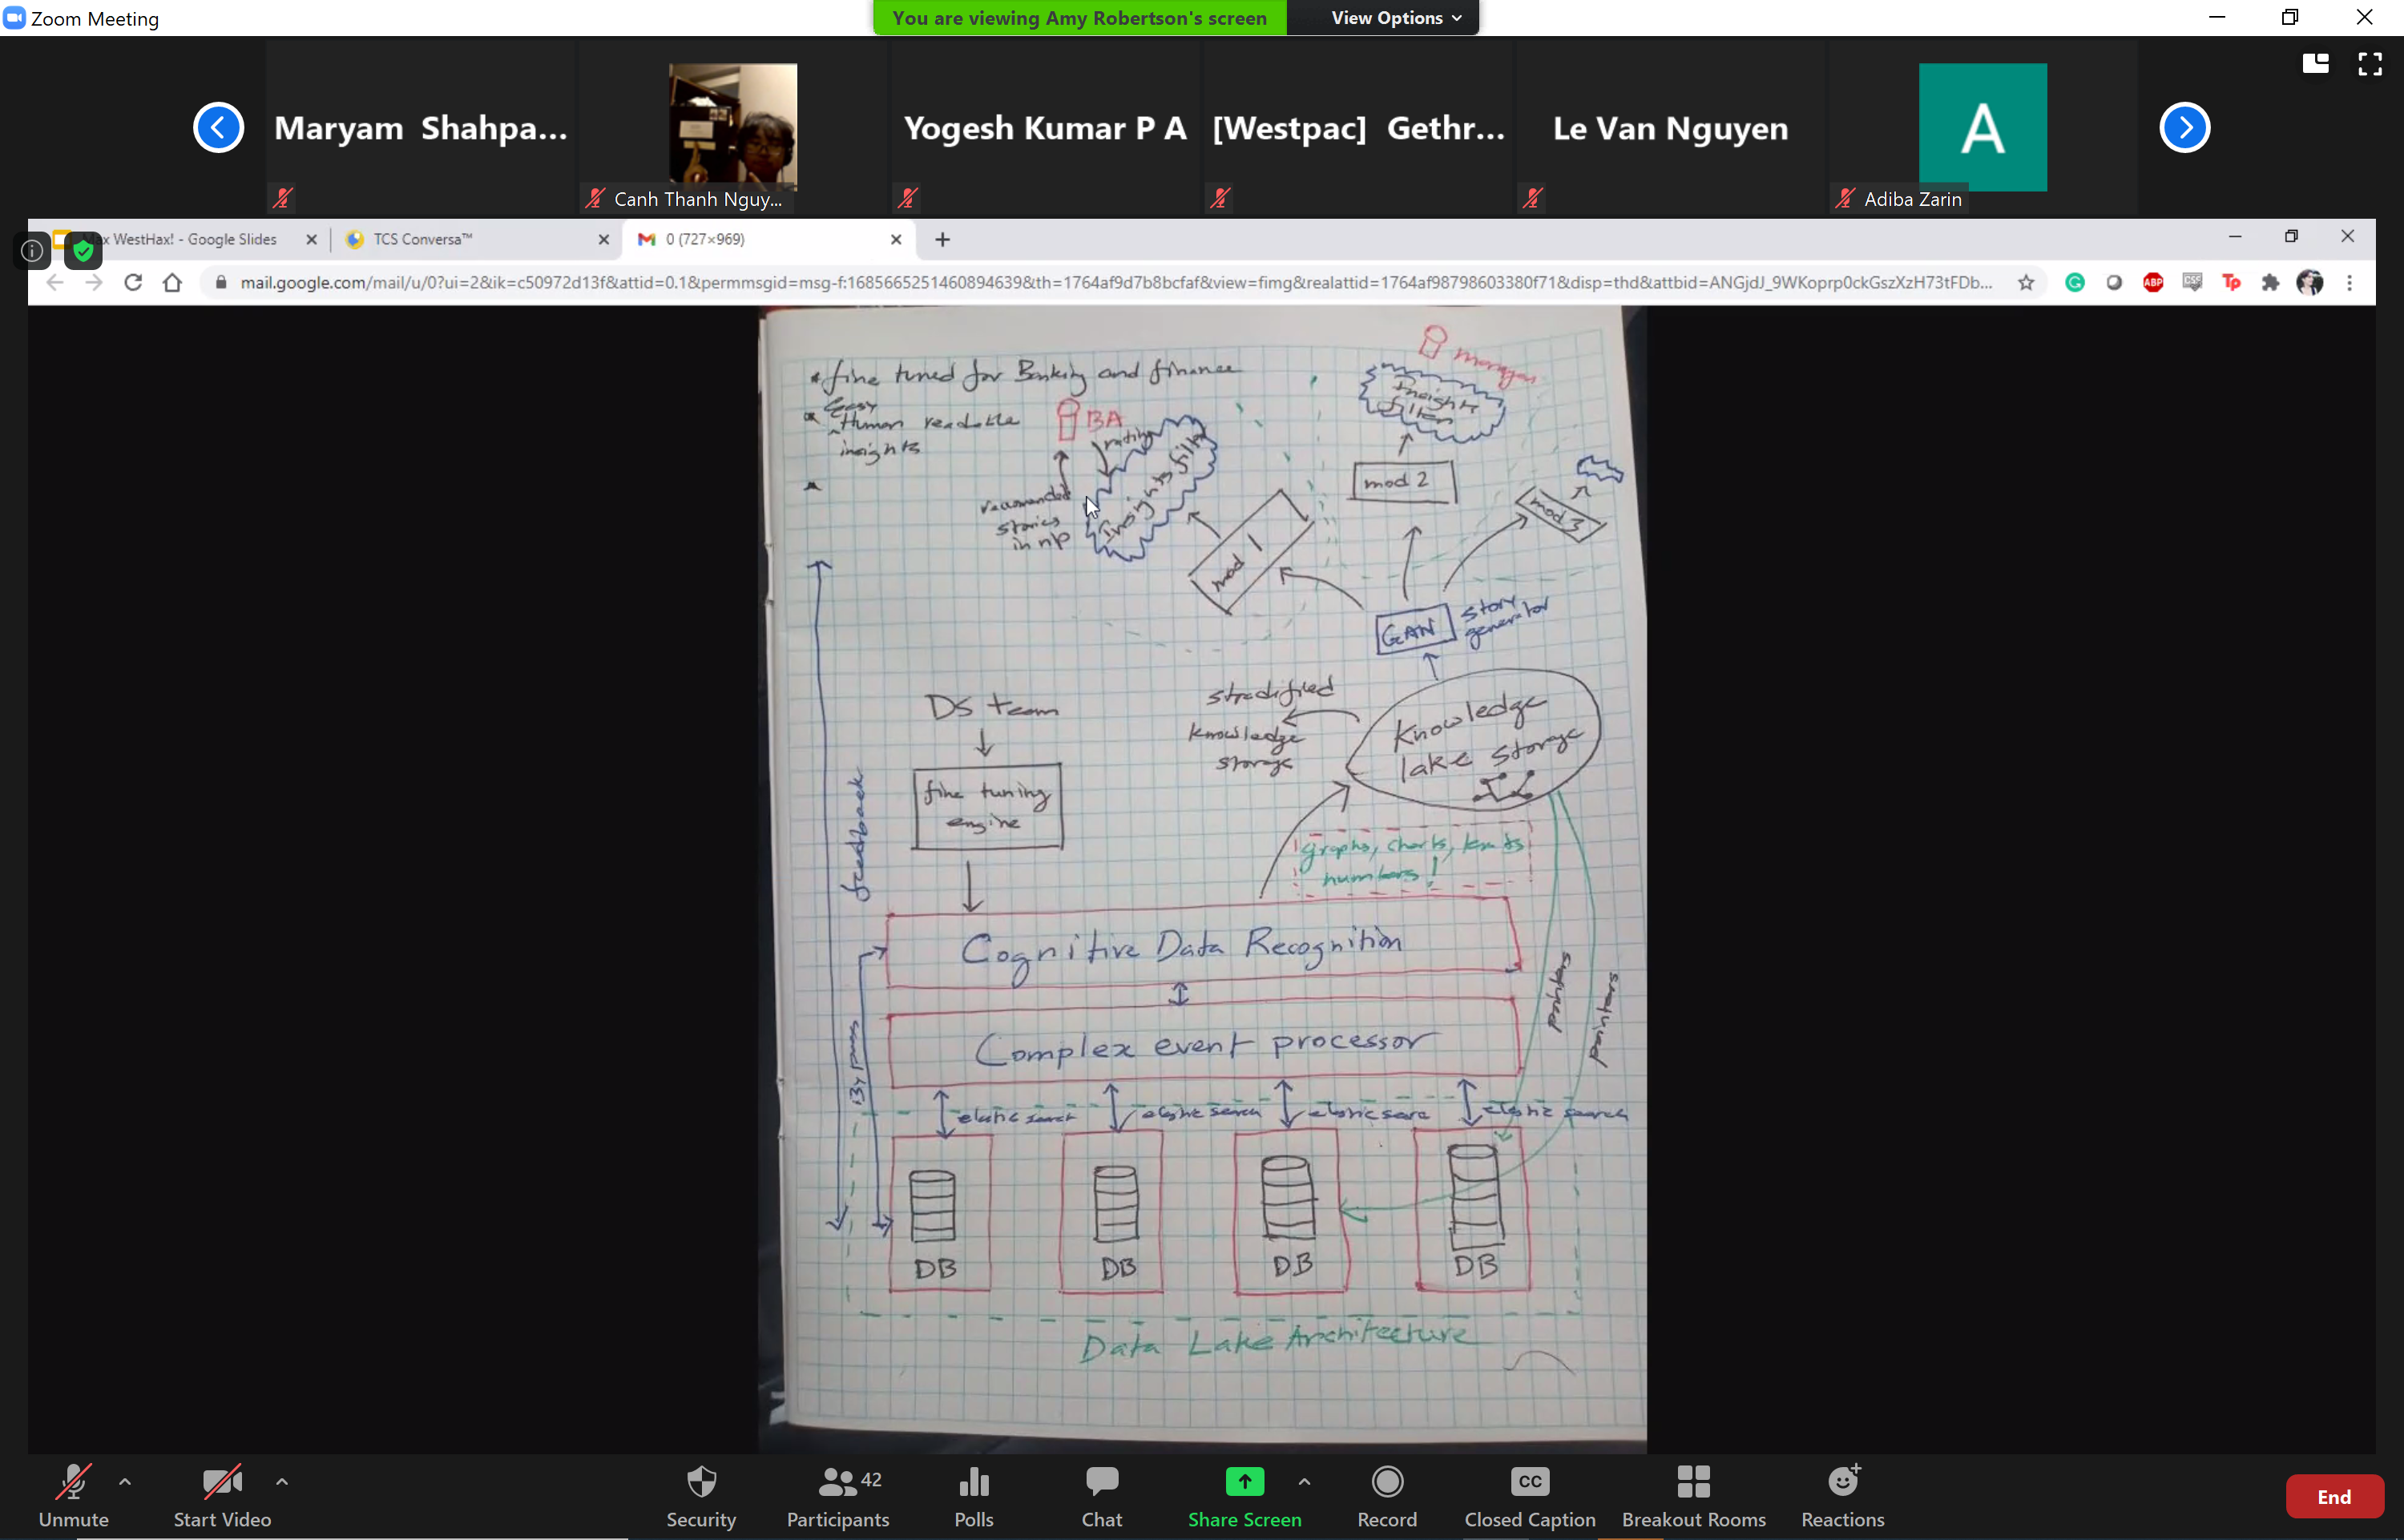 Zoom Meeting
You are viewing Amy Robertson's screen
View Options
Maryam Shahpa...
Canh Thanh Nguy...
Yogesh Kumar P A
[Westpac] Gethr...
Le Van Nguyen
A
Adiba Zarin
x WestHax! - Google Slides
TCS Conversa™
0 (727×969)
mail.google.com/mail/u/0?ui=2&ik=c50972d13f&attid=0.1&permmsgid=msg-f:1685665251460894639&th=1764af9d7b8bcfaf&view=fimg&realattid=1764af98798603380f71&disp=thd&attbid=ANGjdJ_9WKoprp0ckGszXzH73tFDb...
ABP
Tp
* fine tuned for Banking and finance
* Easy
Human readable
insights
BA
rating
Insights filter
stories
in np
mod 1
Insights
filter
mod 2
mod 3
GAN
story
generator
DS team
fine tuning
engine
knowledge
storage
Knowledge
lake storage
graphs, charts,
numbers!
feedback
By pass
Cognitive Data Recognition
Complex event processor
elastic search
elastic search
elastic searc
elastic search
DB
DB
DB
DB
Data Lake Architecture
Unmute
Start Video
Security
Participants
42
Polls
Chat
Share Screen
Record
CC
Closed Caption
Breakout Rooms
Reactions
End